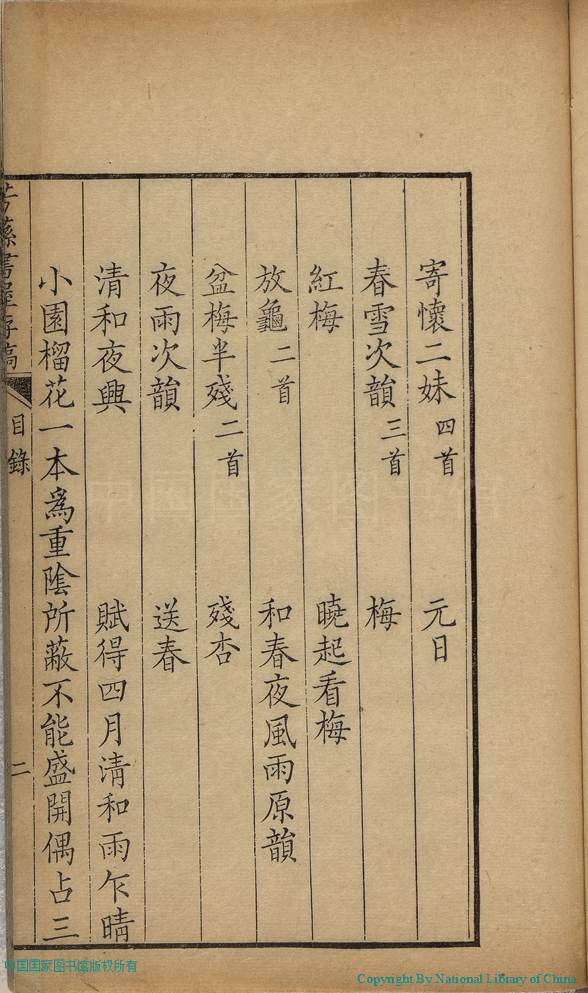 寄懷二妹四首 元日
春雪次韻三首 梅
紅梅 曉起看梅
放龜二首 和春夜風雨原韻
盆梅半殘二首 殘杏
夜雨次韻 送春
清和夜興 賦得四月清和雨乍晴
小園榴花一本為重陰所蔽不能盛開偶占三
書屋存稿 目錄 二
中国国家图书馆
中国国家图书馆版权所有
Copyright By National Library of China